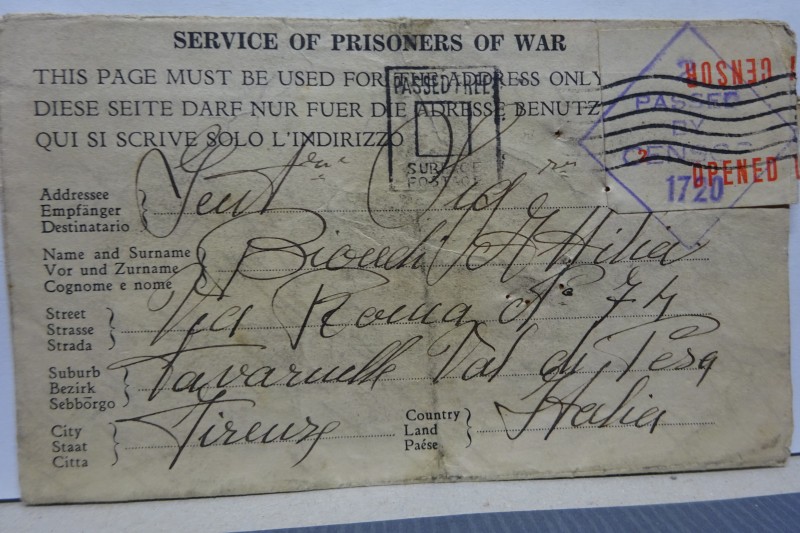 SERVICE OF PRISONERS OF WAR
THIS PAGE MUST BE USED FOR THE ADDRESS ONLY
DIESE SEITE DARF NUR FUER DIE ADRESSE BENUTZ
QUI SI SCRIVE SOLO L'INDIRIZZO
PASSED FREE
SURFACE
POSTAGE
CENSOR
3
PASSED
BY
CENSOR
1720
2
OPENED
Addressee
Empfänger
Destinatario
Gent ma Sig ra
Name and Surname
Vor und Zurname
Cognome e nome
Biondi Attilia
Street
Strasse
Strada
Via Roma No 74
Suburb
Bezirk
Sebbōrgo
Tavarnelle Val di Pesa
City
Staat
Citta
Firenze
Country
Land
Paése
Italia